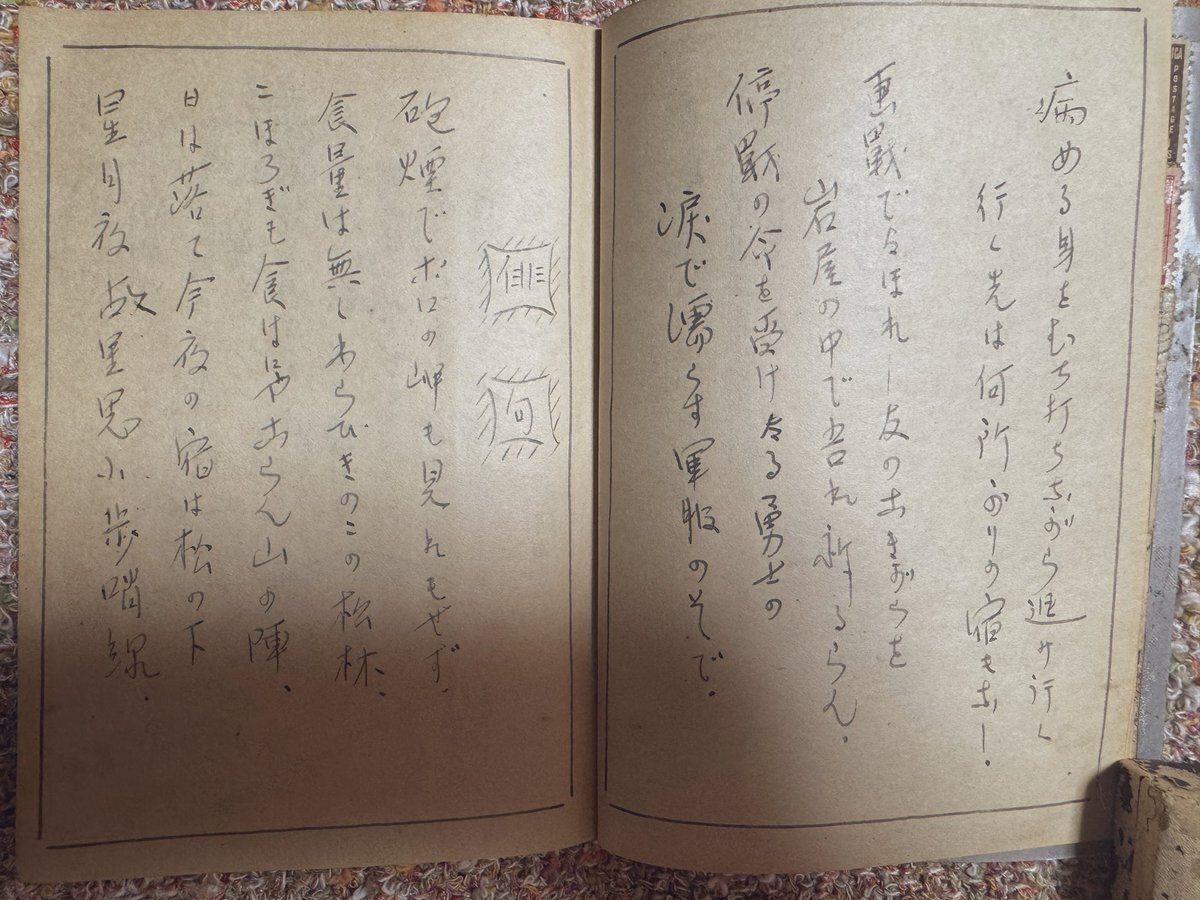 病める身をむち打ちながら進み行く
行く先は何所かりの宿もなし。
悪戦でたほれし友のなきがらを
岩屋の中で吾れ祈るらん。
停戦の令を受けたる勇士の
涙で濡らす軍服のそで。
俳句
砲煙でポロの岬も見れもせず、
食量は無しわらびきのこの松林、
こほろぎも食はにゃならん山の陣、
日は落て今夜の宿は松の下
星月夜故里思ふ歩哨線.
POSTAGE